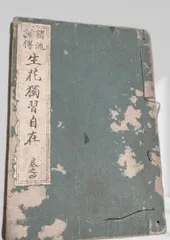 諸流
秘傳
生花獨習自在
卷之四